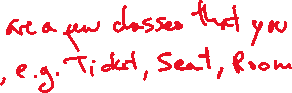 are a few classes that you
, e.g. Ticket, Seat, Room